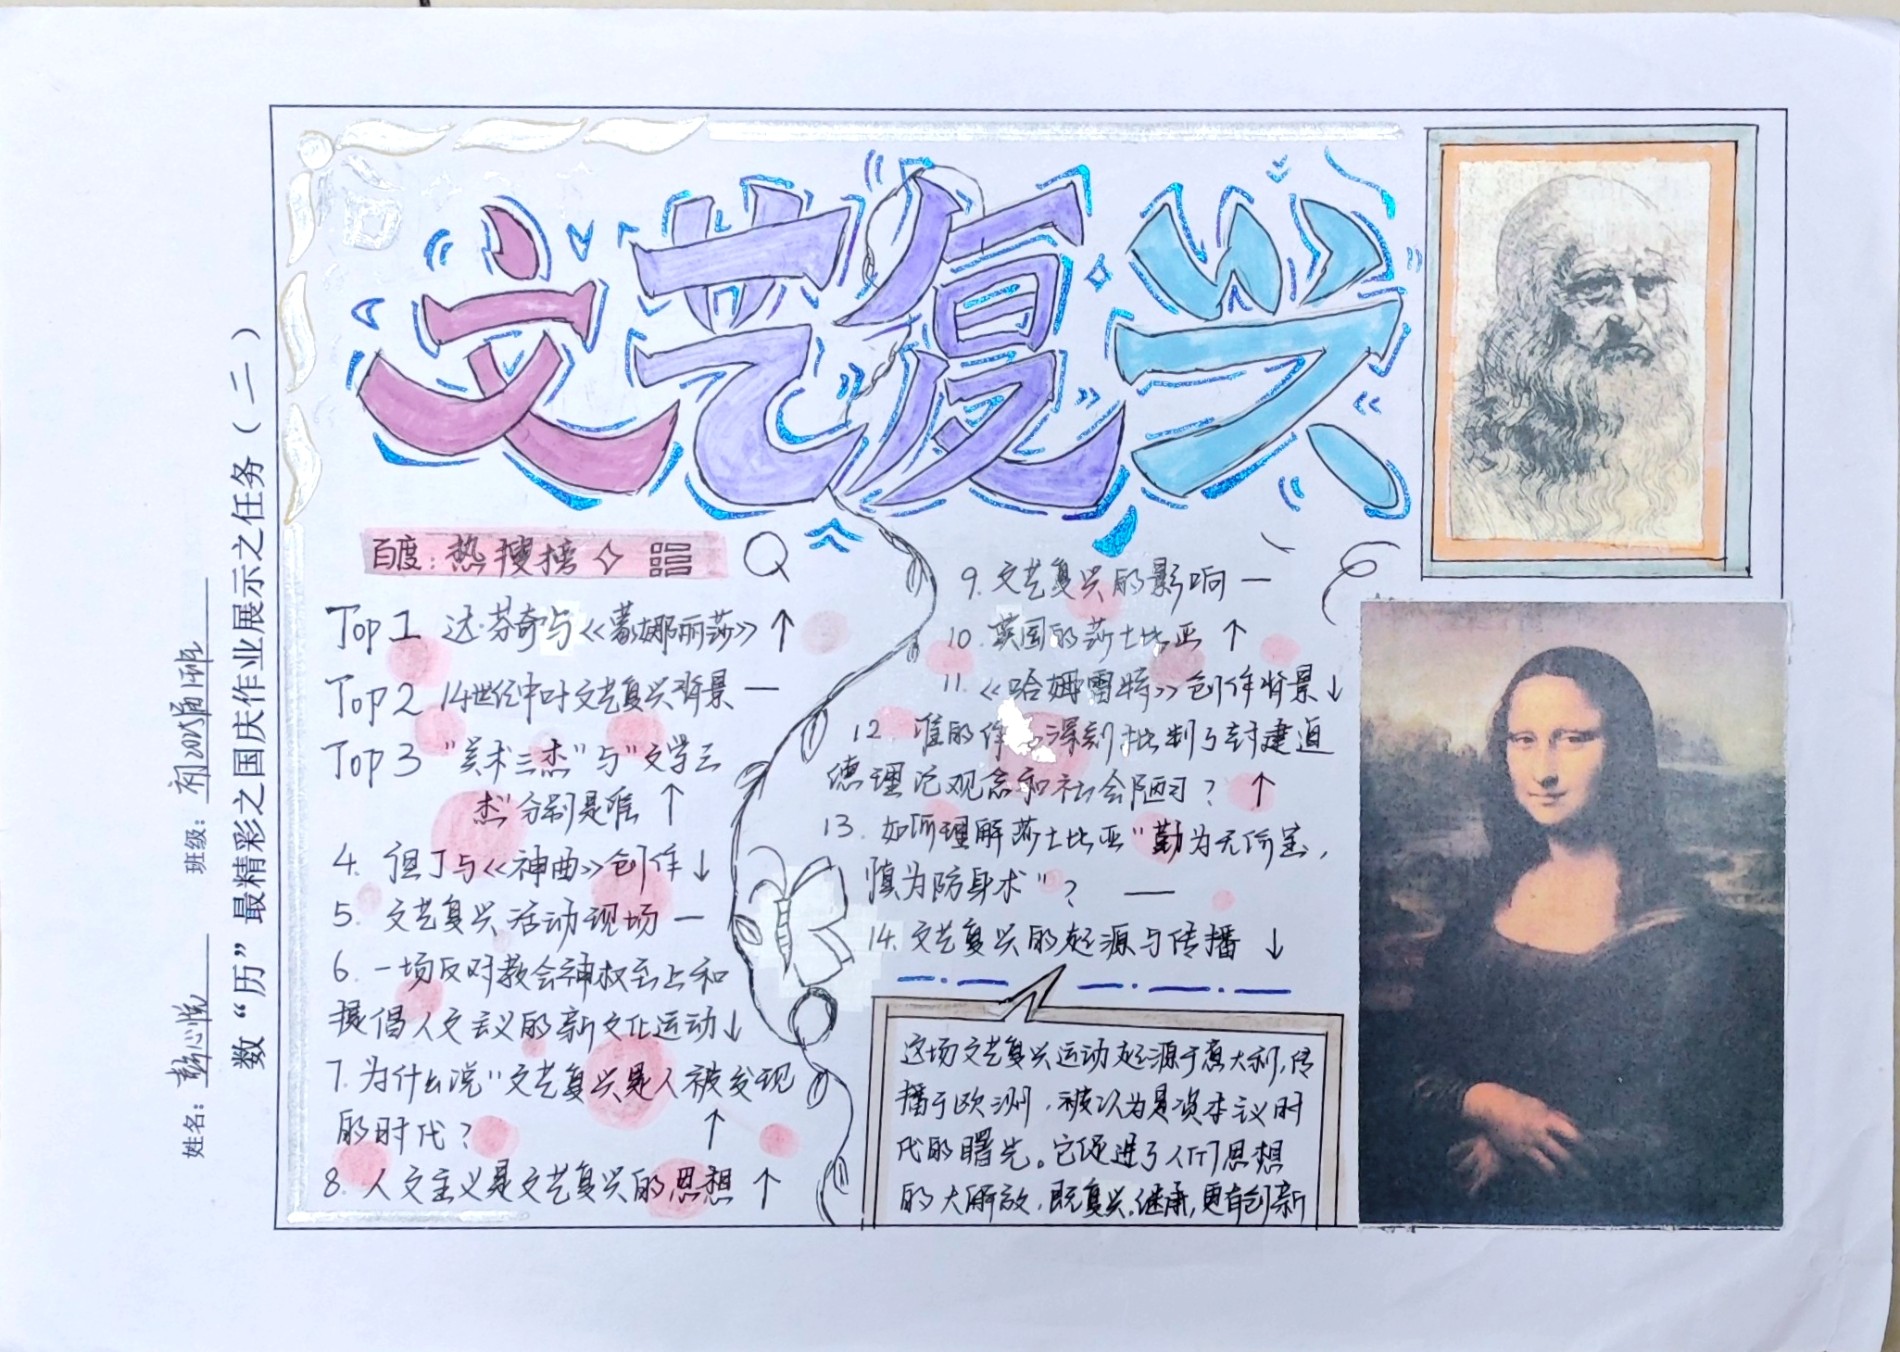 数“历”最精彩之国庆作业展示之任务(二)
姓名:
班级:
文艺复兴
百度:热搜榜
Top 1 达·芬奇与《蒙娜丽莎》↑
Top 2 14世纪中叶文艺复兴背景 —
Top 3 "美术三杰"与"文学三
杰"分别是谁 ↑
4. 但丁与《神曲》创作↓
5. 文艺复兴活动现场 —
6. 一场反对教会神权至上和
提倡人文主义的新文化运动↓
7. 为什么说"文艺复兴是人被发现
的时代? ↑
8. 人文主义是文艺复兴的思想 ↑
9. 文艺复兴的影响 —
10. 英国的莎士比亚 ↑
11. 《哈姆雷特》创作背景↓
12. 谁的作 深刻批判了封建道
德理论观念和社会陋习? ↑
13. 如何理解莎士比亚"勤为无价宝,
慎为防身术"? —
14. 文艺复兴的起源与传播 ↓
这场文艺复兴运动起源于意大利,传
播于欧洲,被认为是资本主义时
代的曙光。它促进了人们思想
的大解放,既复兴,继承,更有创新